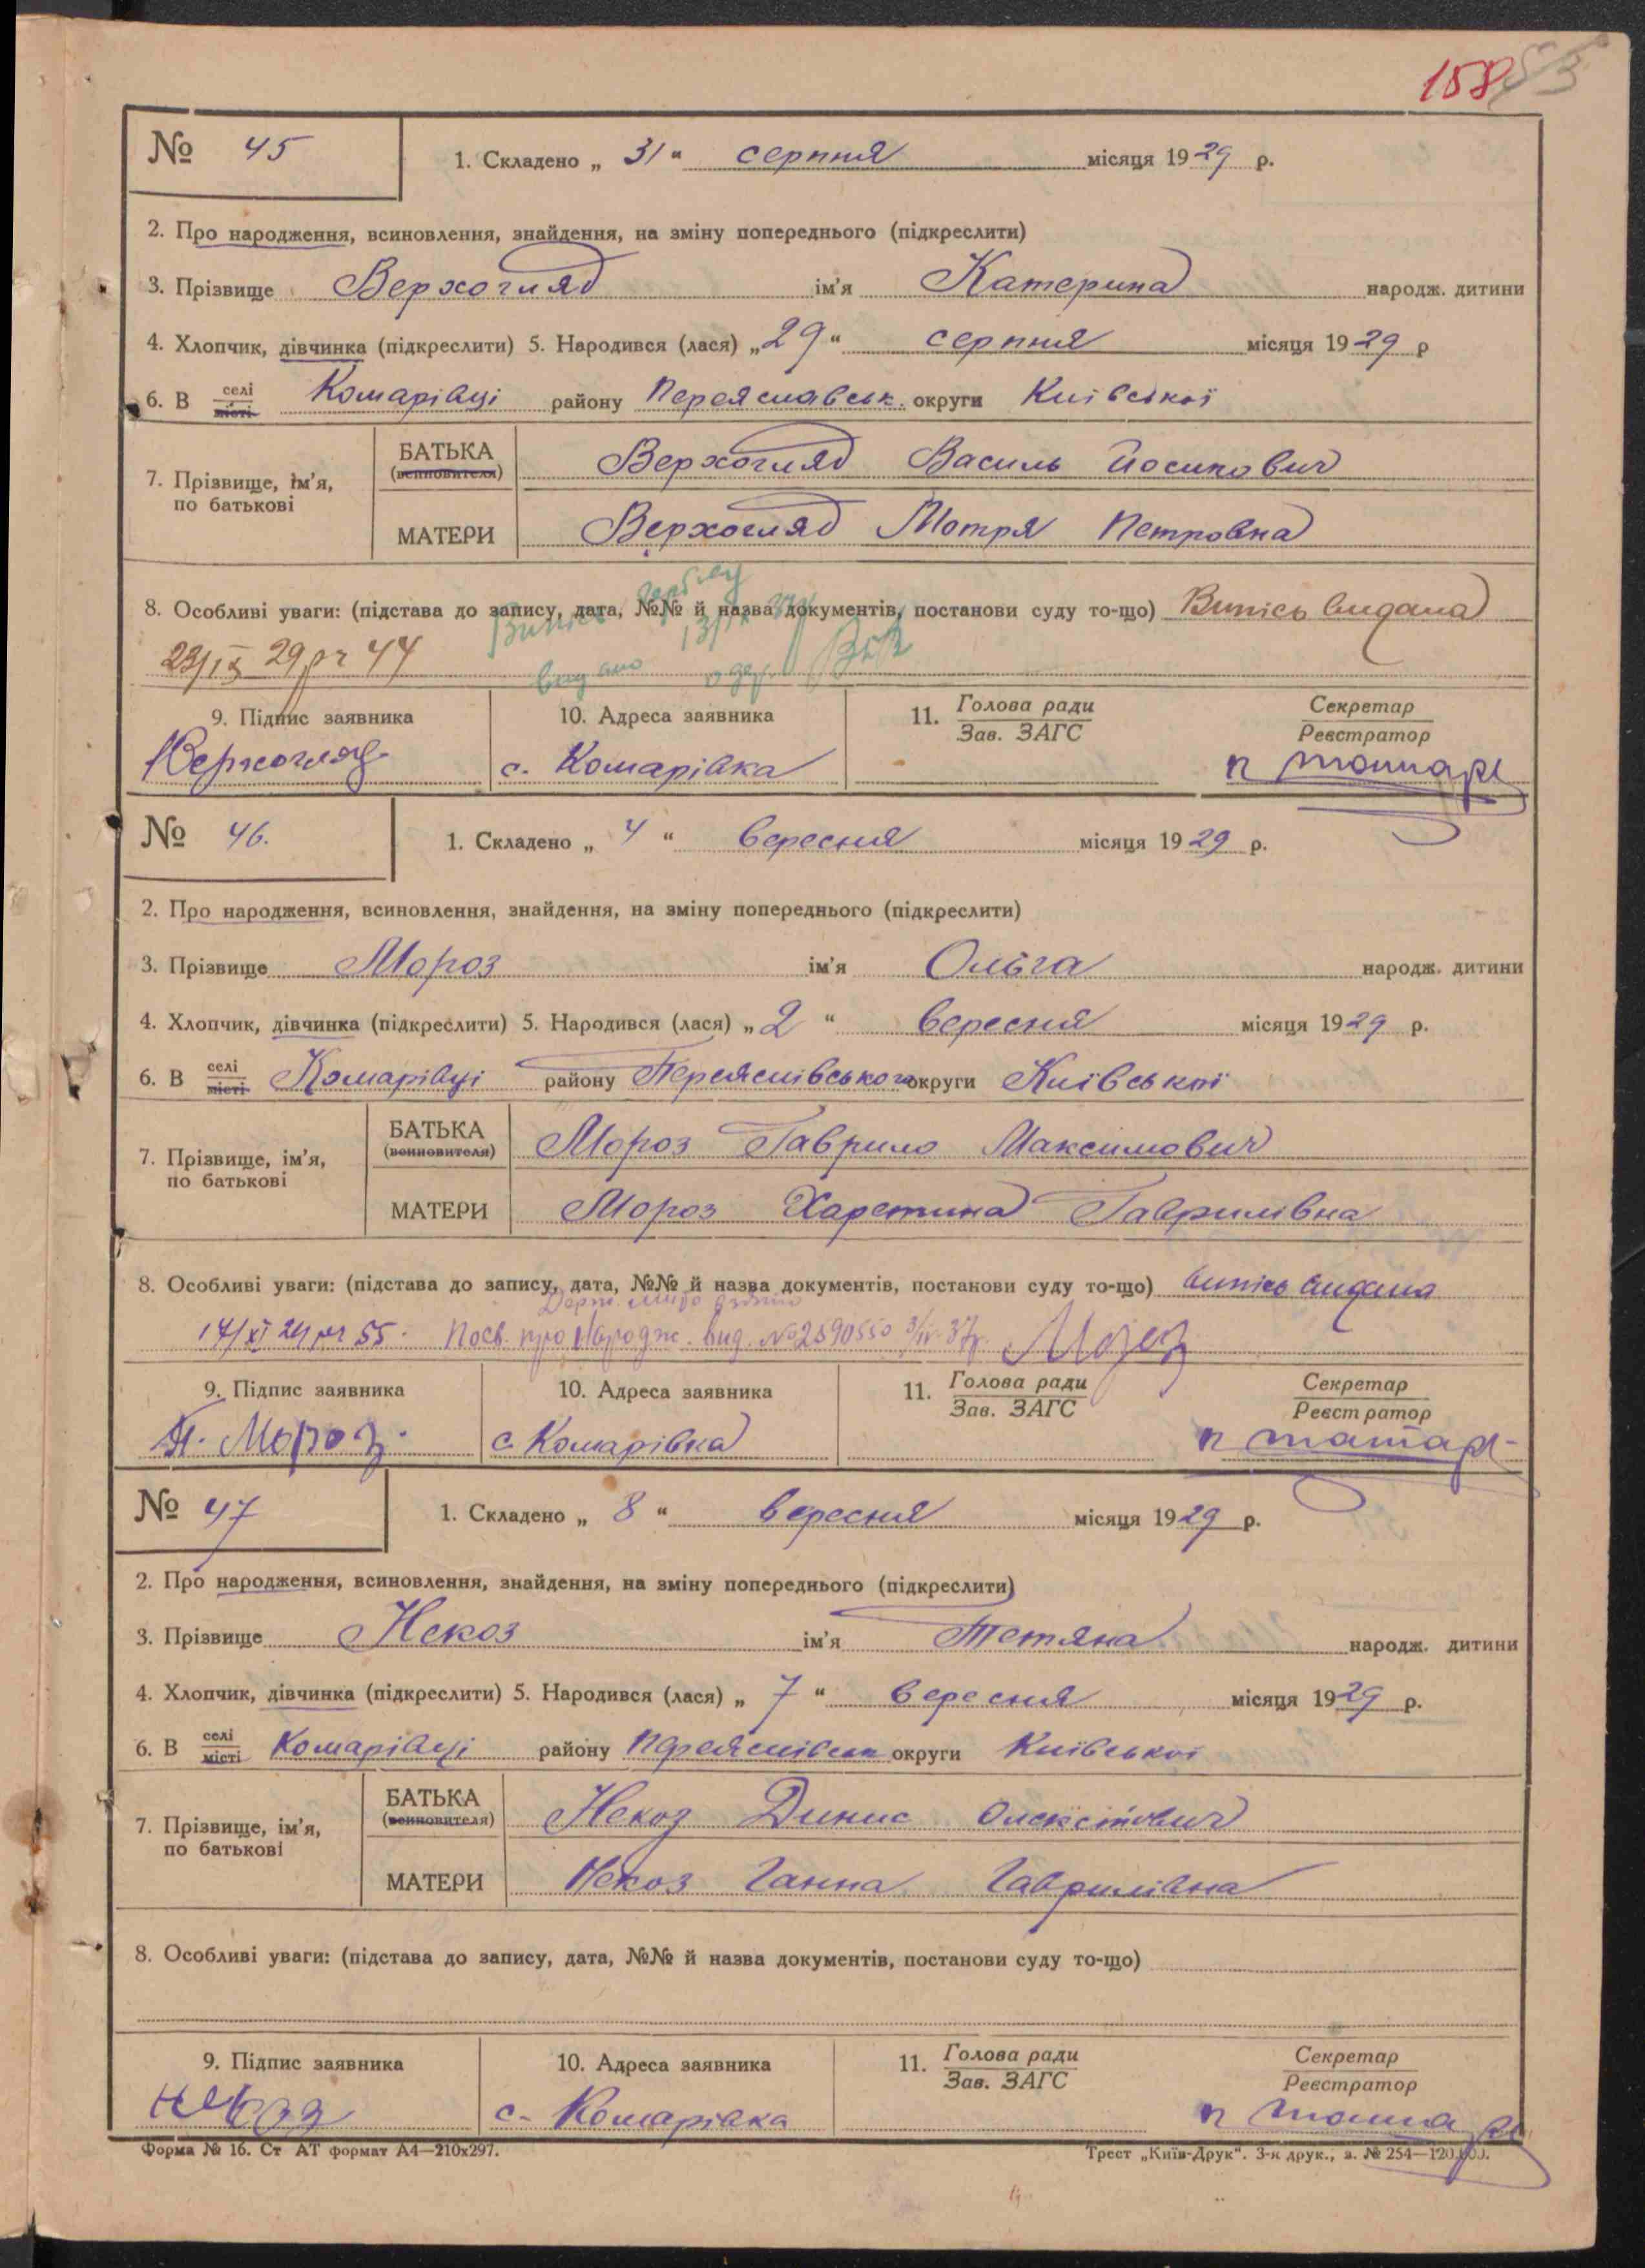 158 85
№ 45 1. Складено „ 31 “ серпня місяця 1929 р.
2. Про народження, всиновлення, знайдення, на зміну попереднього (підкреслити)
3. Прізвище Верхогляд ім'я Катерина народж. дитини
4. Хлопчик, дівчинка (підкреслити) 5. Народився (лася) „ 29 “ серпня місяця 1929 р
6. В селі місті Комарівці району Переяславськ. округи Київської
7. Прізвище, ім'я, по батькові
БАТЬКА (всиновителя) Верхогляд Василь Йосипович
МАТЕРИ Верхогляд Мотря Петровна
8. Особливі уваги: (підстава до запису, дата, №№ й назва документів, постанови суду то-що) Випісь видана
23/IX 29 р 44
Випісь
видано одер.
9. Підпис заявника 10. Адреса заявника 11. Голова ради Зав. ЗАГС Секретар Реєстратор
Верхогляд с. Комарівка
№ 46. 1. Складено „ 4 “ вересня місяця 1929 р.
2. Про народження, всиновлення, знайдення, на зміну попереднього (підкреслити)
3. Прізвище Мороз ім'я Ольга народж. дитини
4. Хлопчик, дівчинка (підкреслити) 5. Народився (лася) „ 2 “ вересня місяця 1929 р.
6. В селі місті Комарівці району Переяслівського округи Київської
7. Прізвище, ім'я, по батькові
БАТЬКА (всиновителя) Мороз Гаврило Максимович
МАТЕРИ Мороз Харетина Гаврилівна
8. Особливі уваги: (підстава до запису, дата, №№ й назва документів, постанови суду то-що) випісь видана
14/XI 29 р 55. Посв. про Народж. вид. №2890550 3/IV-37р. Мороз
9. Підпис заявника 10. Адреса заявника 11. Голова ради Зав. ЗАГС Секретар Реєстратор
Мороз. с. Комарівка
№ 47 1. Складено „ 8 “ вересня місяця 1929 р.
2. Про народження, всиновлення, знайдення, на зміну попереднього (підкреслити)
3. Прізвище Некоз ім'я Тетяна народж. дитини
4. Хлопчик, дівчинка (підкреслити) 5. Народився (лася) „ 7 “ вересня місяця 1929 р.
6. В селі місті Комарівці району Переяслівськ округи Київської
7. Прізвище, ім'я, по батькові
БАТЬКА (всиновителя) Некоз Динис
МАТЕРИ Некоз Ганна Гаврилівна
8. Особливі уваги: (підстава до запису, дата, №№ й назва документів, постанови суду то-що)
9. Підпис заявника 10. Адреса заявника 11. Голова ради Зав. ЗАГС Секретар Реєстратор
Некоз с. Комарівка
Форма № 16. Ст АТ формат А4—210x297. Трест „Київ-Друк“. 3-я друк., з. № 254—120.000.